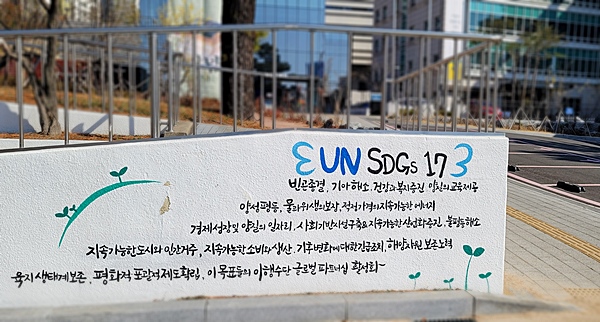 UN SDGs 17
빈곤종결, 기아해소, 건강과 복지증진, 양질의 교육제공
양성평등, 물과 위생의 보장, 적정가격의 지속가능한 에너지
경제성장 및 양질의 일자리, 사회기반시설구축 & 지속가능한 산업화증진, 불평등해소
지속가능한 도시와 인간거주, 지속가능한 소비와 생산, 기후변화에 대한 긴급조치, 해양자원 보존노력
육지생태계보존, 평화적 포괄적 제도확립, 이 목표들의 이행수단 글로벌 파트너십 활성화~